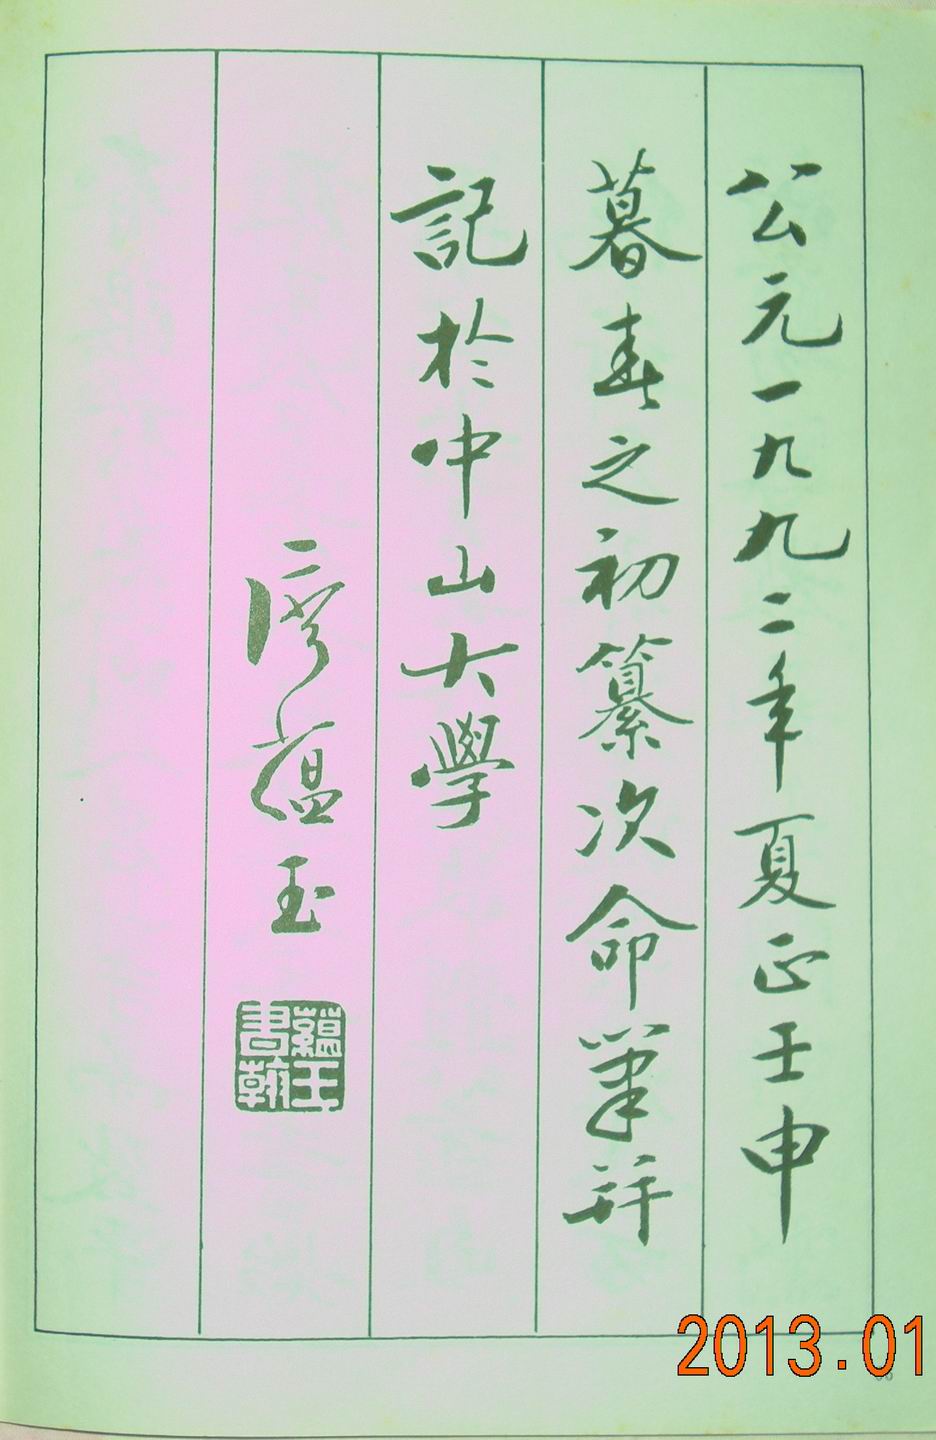 公元一九九二年夏正壬申
暮春之初纂次命筆并
記於中山大學
廖蘊玉
蘊玉書翰
2013.01